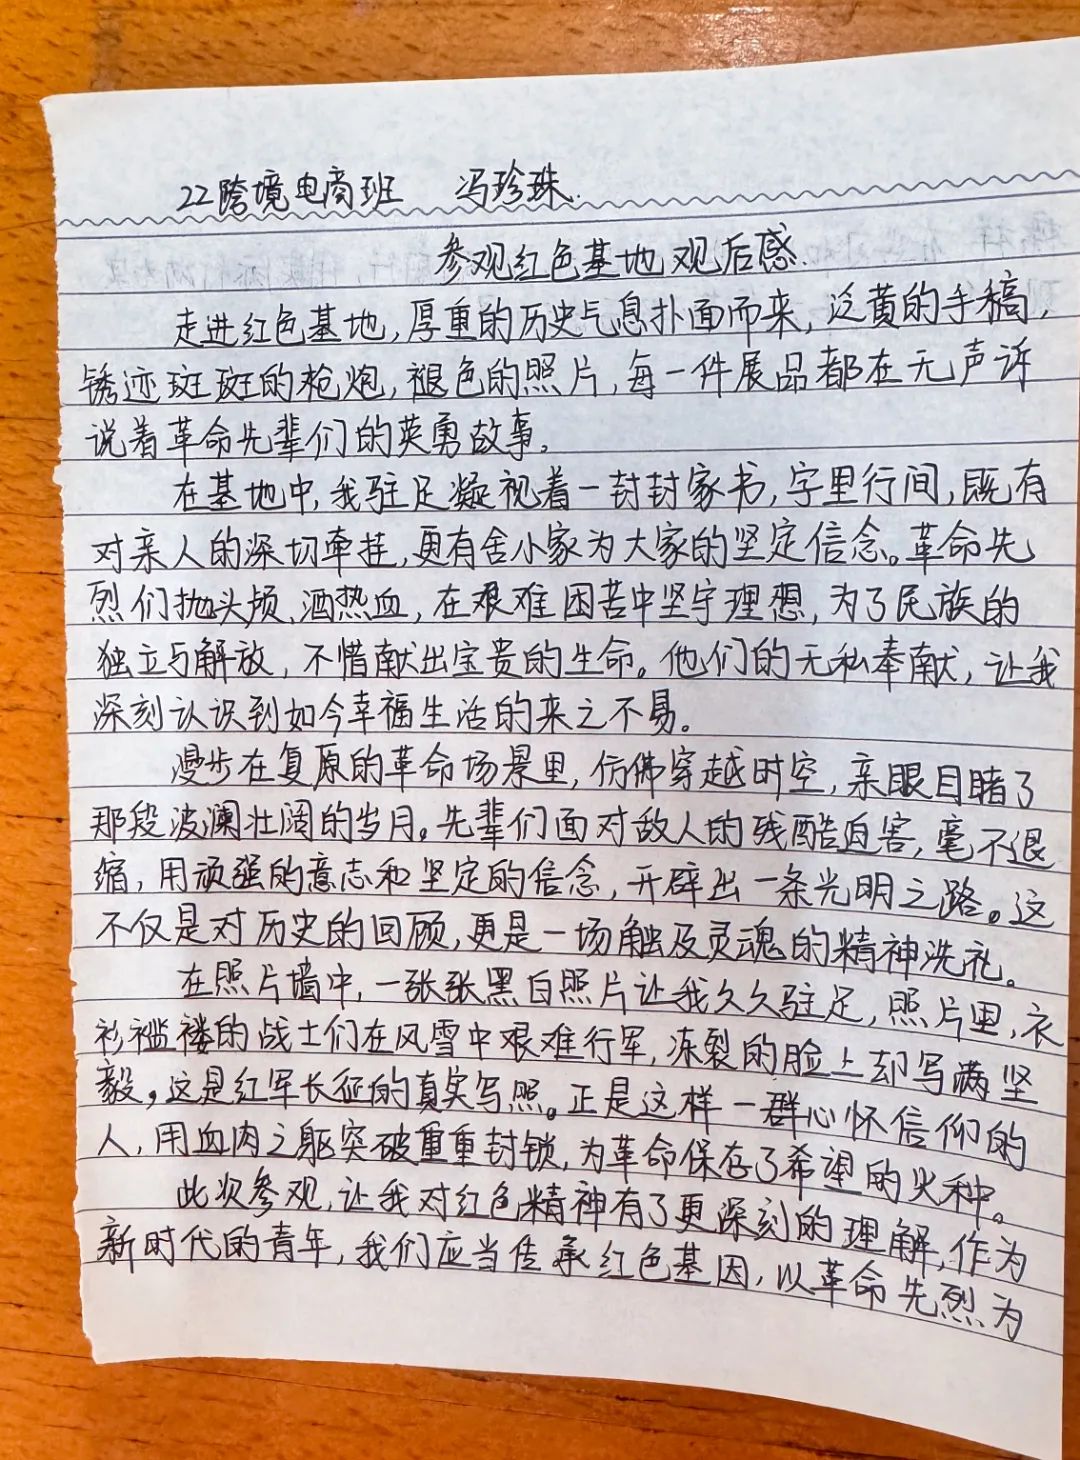 22跨境电商班 冯珍珠.
参观红色基地观后感.
走进红色基地,厚重的历史气息扑面而来,泛黄的手稿,
锈迹斑斑的枪炮,褪色的照片,每一件展品都在无声诉
说着革命先辈们的英勇故事。
在基地中,我驻足凝视着一封封家书,字里行间,既有
对亲人的深切牵挂,更有舍小家为大家的坚定信念。革命先
烈们抛头颅,洒热血,在艰难困苦中坚守理想,为了民族的
独立与解放,不惜献出宝贵的生命。他们的无私奉献,让我
深刻认识到如今幸福生活的来之不易。
漫步在复原的革命场景里,仿佛穿越时空,亲眼目睹了
那段波澜壮阔的岁月。先辈们面对敌人的残酷迫害,毫不退
缩,用顽强的意志和坚定的信念,开辟出一条光明之路。这
不仅是对历史的回顾,更是一场触及灵魂的精神洗礼。
在照片墙中,一张张黑白照片让我久久驻足,照片里,衣
衫褴褛的战士们在风雪中艰难行军,冻裂的脸上却写满坚
毅。这是红军长征的真实写照。正是这样一群心怀信仰的
人,用血肉之躯突破重重封锁,为革命保存了希望的火种。
此次参观,让我对红色精神有了更深刻的理解,作为
新时代的青年,我们应当传承红色基因,以革命先烈为